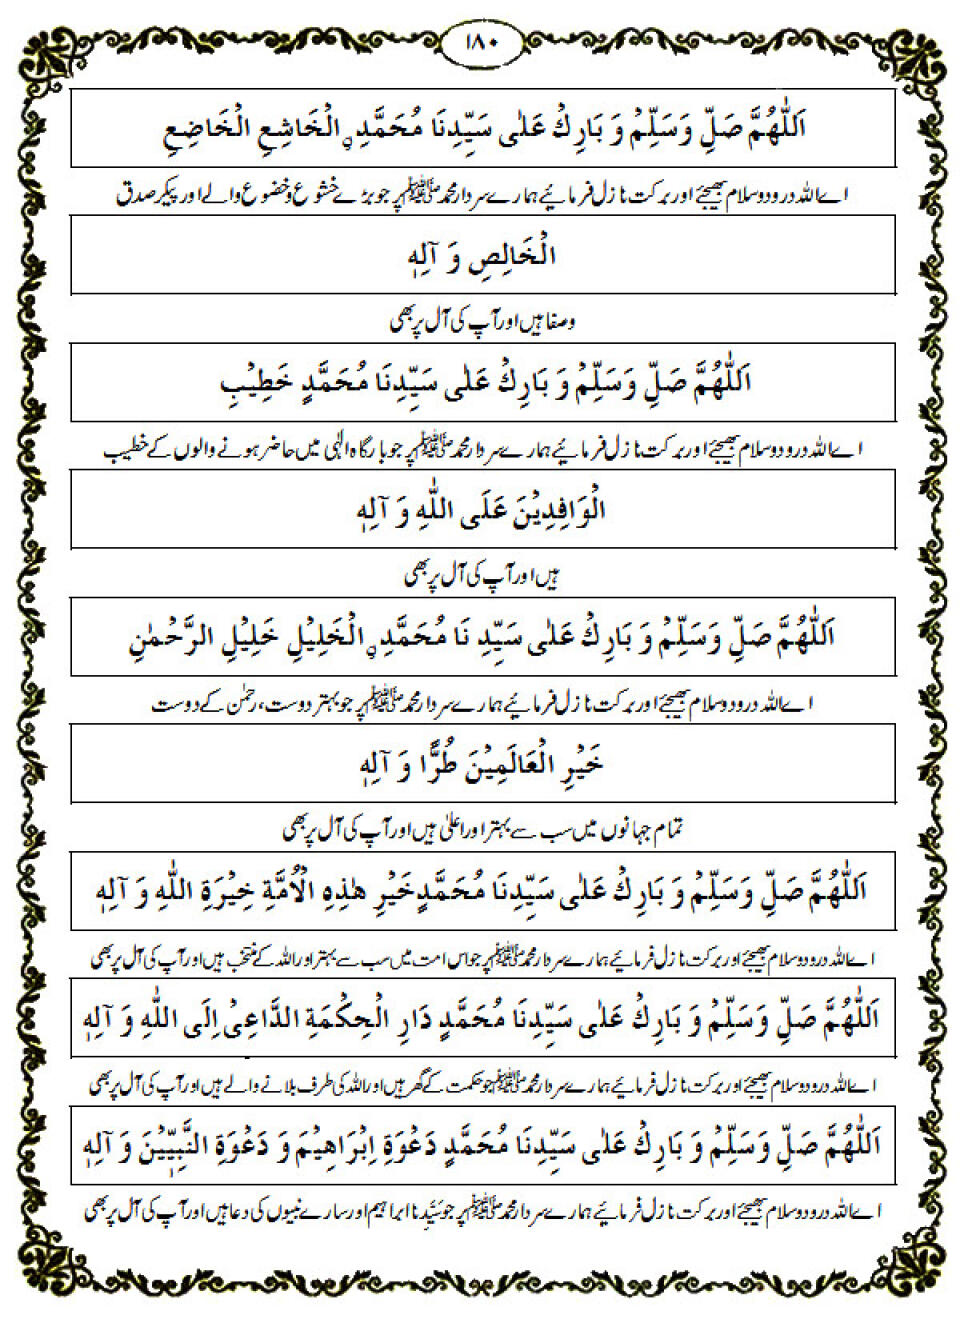 ۱۸۰
اَللّٰهُمَّ صَلِّ وَسَلِّمْ وَ بَارِكْ عَلٰى سَيِّدِنَا مُحَمَّدِ ۣالْخَاشِعِ الْخَاضِعِ
اے اللہ درود و سلام بھیجئے اور برکت نازل فرمائیے ہمارے سردار محمد ﷺ پر جو بڑے خشوع و خضوع والے اور پیکر صدق
الْخَالِصِ وَ آلِهٖ
وصفا ہیں اور آپ کی آل پر بھی
اَللّٰهُمَّ صَلِّ وَسَلِّمْ وَ بَارِكْ عَلٰى سَيِّدِنَا مُحَمَّدٍ خَطِيْبِ
اے اللہ درود و سلام بھیجئے اور برکت نازل فرمائیے ہمارے سردار محمد ﷺ پر جو بارگاہ الٰہی میں حاضر ہونے والوں کے خطیب
الْوَافِدِيْنَ عَلَى اللّٰهِ وَ آلِهٖ
ہیں اور آپ کی آل پر بھی
اَللّٰهُمَّ صَلِّ وَسَلِّمْ وَ بَارِكْ عَلٰى سَيِّدِ نَا مُحَمَّدِ ۣالْخَلِيْلِ خَلِيْلِ الرَّحْمٰنِ
اے اللہ درود و سلام بھیجئے اور برکت نازل فرمائیے ہمارے سردار محمد ﷺ پر جو بہتر دوست، رحمٰن کے دوست
خَيْرِ الْعَالَمِيْنَ طُرًّا وَ آلِهٖ
تمام جہانوں میں سب سے بہتر اور اعلیٰ ہیں اور آپ کی آل پر بھی
اَللّٰهُمَّ صَلِّ وَسَلِّمْ وَ بَارِكْ عَلٰى سَيِّدِنَا مُحَمَّدٍ خَيْرِ هٰذِهِ الْاُمَّةِ خِيْرَةِ اللّٰهِ وَ آلِهٖ
اے اللہ درود و سلام بھیجئے اور برکت نازل فرمائیے ہمارے سردار محمد ﷺ پر جو اس امت میں سب سے بہتر اور اللہ کے منتخب ہیں اور آپ کی آل پر بھی
اَللّٰهُمَّ صَلِّ وَسَلِّمْ وَ بَارِكْ عَلٰى سَيِّدِنَا مُحَمَّدٍ دَارِ الْحِكْمَةِ الدَّاعِىْ اِلَى اللّٰهِ وَ آلِهٖ
اے اللہ درود و سلام بھیجئے اور برکت نازل فرمائیے ہمارے سردار محمد ﷺ پر جو حکمت کے گھر ہیں اور اللہ کی طرف بلانے والے ہیں اور آپ کی آل پر بھی
اَللّٰهُمَّ صَلِّ وَسَلِّمْ وَ بَارِكْ عَلٰى سَيِّدِنَا مُحَمَّدٍ دَعْوَةِ اِبْرَاهِيْمَ وَ دَعْوَةِ النَّبِيِّيْنَ وَ آلِهٖ
اے اللہ درود و سلام بھیجئے اور برکت نازل فرمائیے ہمارے سردار محمد ﷺ پر جو سَیِّدِنا ابراہیم اور سارے نبیوں کی دعا ہیں اور آپ کی آل پر بھی